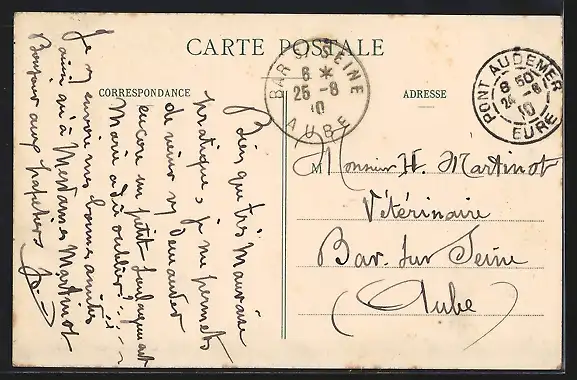 CARTE POSTALE
CORRESPONDANCE
ADRESSE
BAR S. SEINE
6 *
25 - 8
10
AUBE
PONT AUDEMER
8 50
24 - 8
10
EURE
Bien que très mauvaise
pratique, je me permets
de venir vs demander
encore un petit soulagement
Marie a dû oublier!
Je vs envoie mes bonnes amitiés
ainsi qu'à Mesdames Martinot
Bonjour aux papetiers
Monsieur H. Martinot
Vétérinaire
Bar. sur Seine
(Aube)